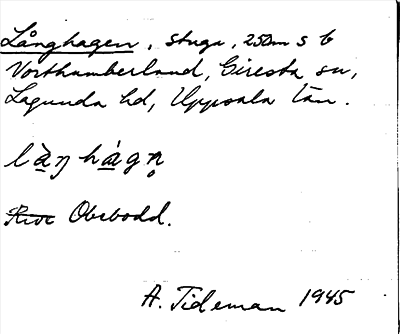 Långhagen, stuga, 250m s b
Northumberland, Giresta sn,
Lagunda hd, Uppsala län.
làŋhágn̥
Obebodd.
A. Tideman 1945